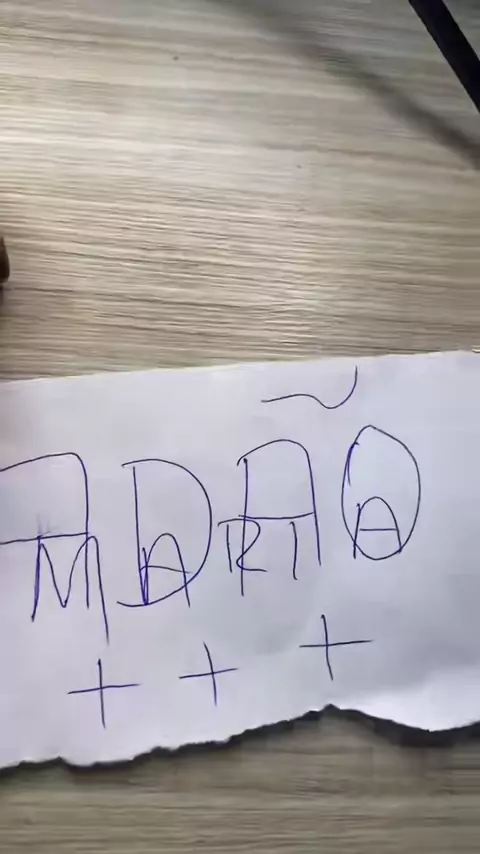 ADÃO
MARIA
+ + +